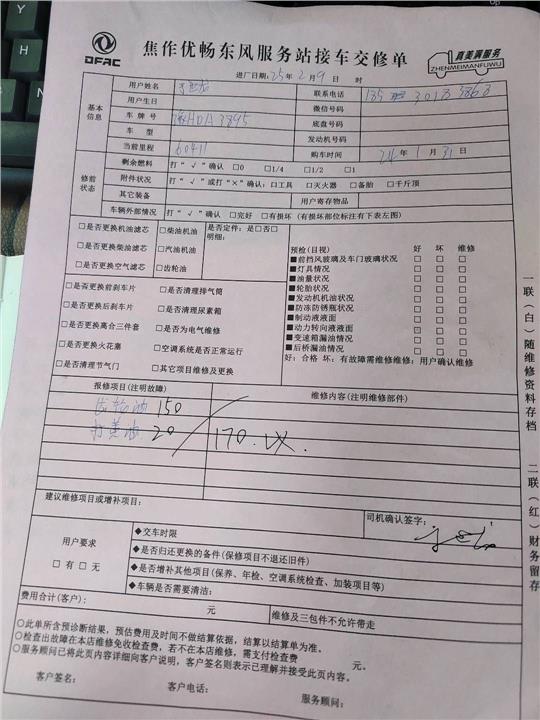 DFAC 焦作优畅东风服务站接车交修单 真美满服务
ZHENMEIMANFUWU
进厂日期:25年2月9日 时
基本信息
用户姓名 联系电话 185 3018 3868
用户生日 微信号码
车牌号 豫HDA3895 底盘号码
车型 发动机号码
当前里程 60411 购车时间 24年1月31日
修前状态
剩余燃料 打“√”确认 □0 □1/4 □1/2 □1
附件状况 打“√”或打“×”确认:□工具 □灭火器 □备胎 □千斤顶
其它装备 用户寄存物品
车辆外部情况 打“√”确认 □完好 □有损坏(有损坏部位标注有下表左图)
□是否更换机油滤芯 □柴油机油 是否定件:是□否□
明细:
□是否更换柴油滤芯 □汽油机油
□是否更换空气滤芯 □齿轮油
□是否更换前刹车片 □是否清理排气筒
□是否更换后刹车片 □是否清理尿素箱
□是否更换离合三件套 □是否为电气维修
□是否更换火花塞 □空调系统是否正常运行
□是否清理节气门 □其它项目维修及更换
预检(目视) 好 坏 维修
■前挡风玻璃及车门玻璃状况 □ □ □
■灯具情况 □ □ □
■油量状况 □ □ □
■轮胎状况 □ □ □
■发动机机油状况 □ □ □
■防冻防锈瓶状况 □ □ □
■制动液液面 □ □ □
■动力转向液液面 □ □ □
■变速箱漏油情况 □ □ □
■后桥漏油情况 □ □ □
好:合格 坏:有故障需维修维修:用户确认维修
报修项目(注明故障) 维修内容(注明维修部件)
齿轮油 150
打黄油 20 170.
建议维修项目或增补项目:
司机确认签字:
用户要求
□有□无
◆交车时限
◆是否归还更换的备件(保修项目不退还旧件)
◆是否增补其他项目(保养、年检、空调系统检查、加装项目等)
◆车辆是否需要清洁:
费用合计(客户): 元 维修及三包件不允许带走
○此单所含预诊断结果,预估费用及时间不做结算依据,结算以结算单为准。
○检查出故障在本店维修免收检查费,若不在本店维修,需支付检查费 元。
○服务顾问已将此页内容详细向客户说明,客户签名则表示已理解并接受此页内容。
客户签名: 客户电话: 服务顾问:
一联(白)随维修资料存档 二联(红)财务留存